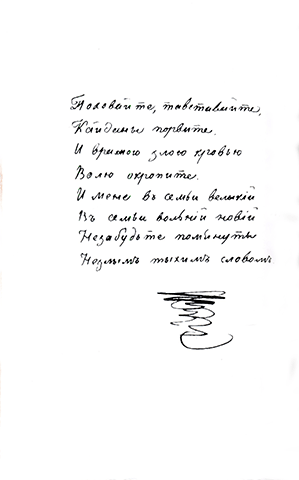 Поховайте, та вставайте,
Кайданы порвите.
И вражою злою кровью
Волю окропите.
И мене въ семьи велыкій
Въ семьи вольній новій
Незабудьте помянуты
Незлымъ тыхимъ словомъ